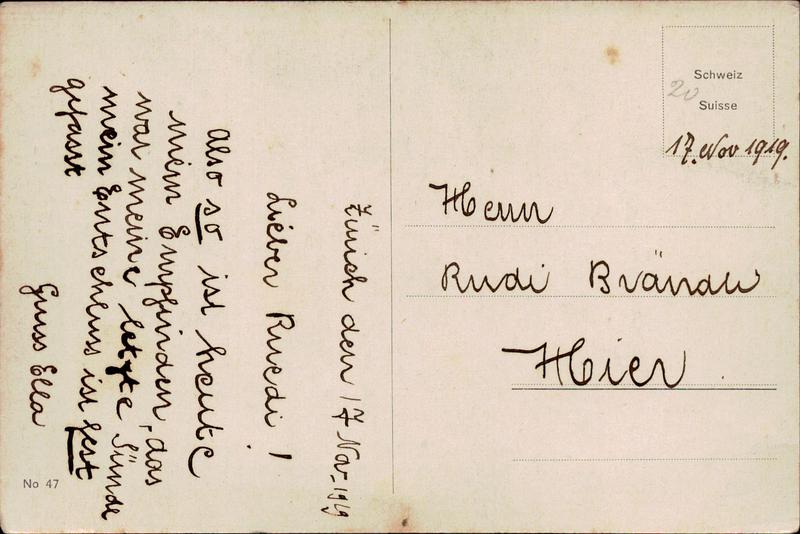 Zürich den 17 Nov. 1919
Lieber Ruedi!
Also so ist heute
mein Empfinden, das
war meine letzte Sünde
mein Entschluss ist fest
gefasst
Gruss Ella
No 47
Schweiz
20
Suisse
17. Nov 1919.
Herrn
Rudi Brändli
Hier